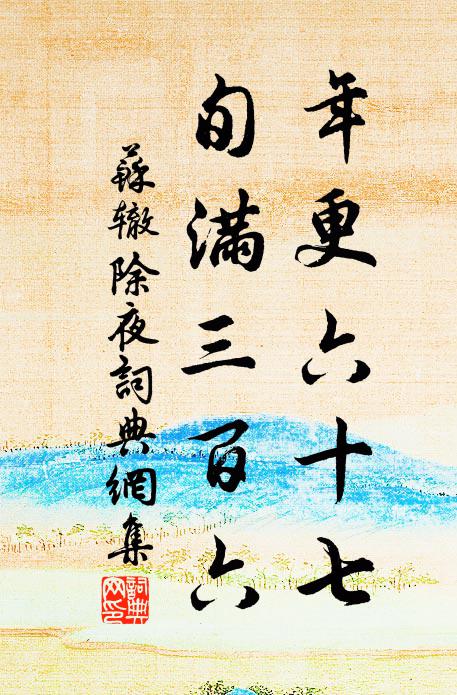 年更六十七
旬滿三百六
蘇轍除夜詞典網集
詞典